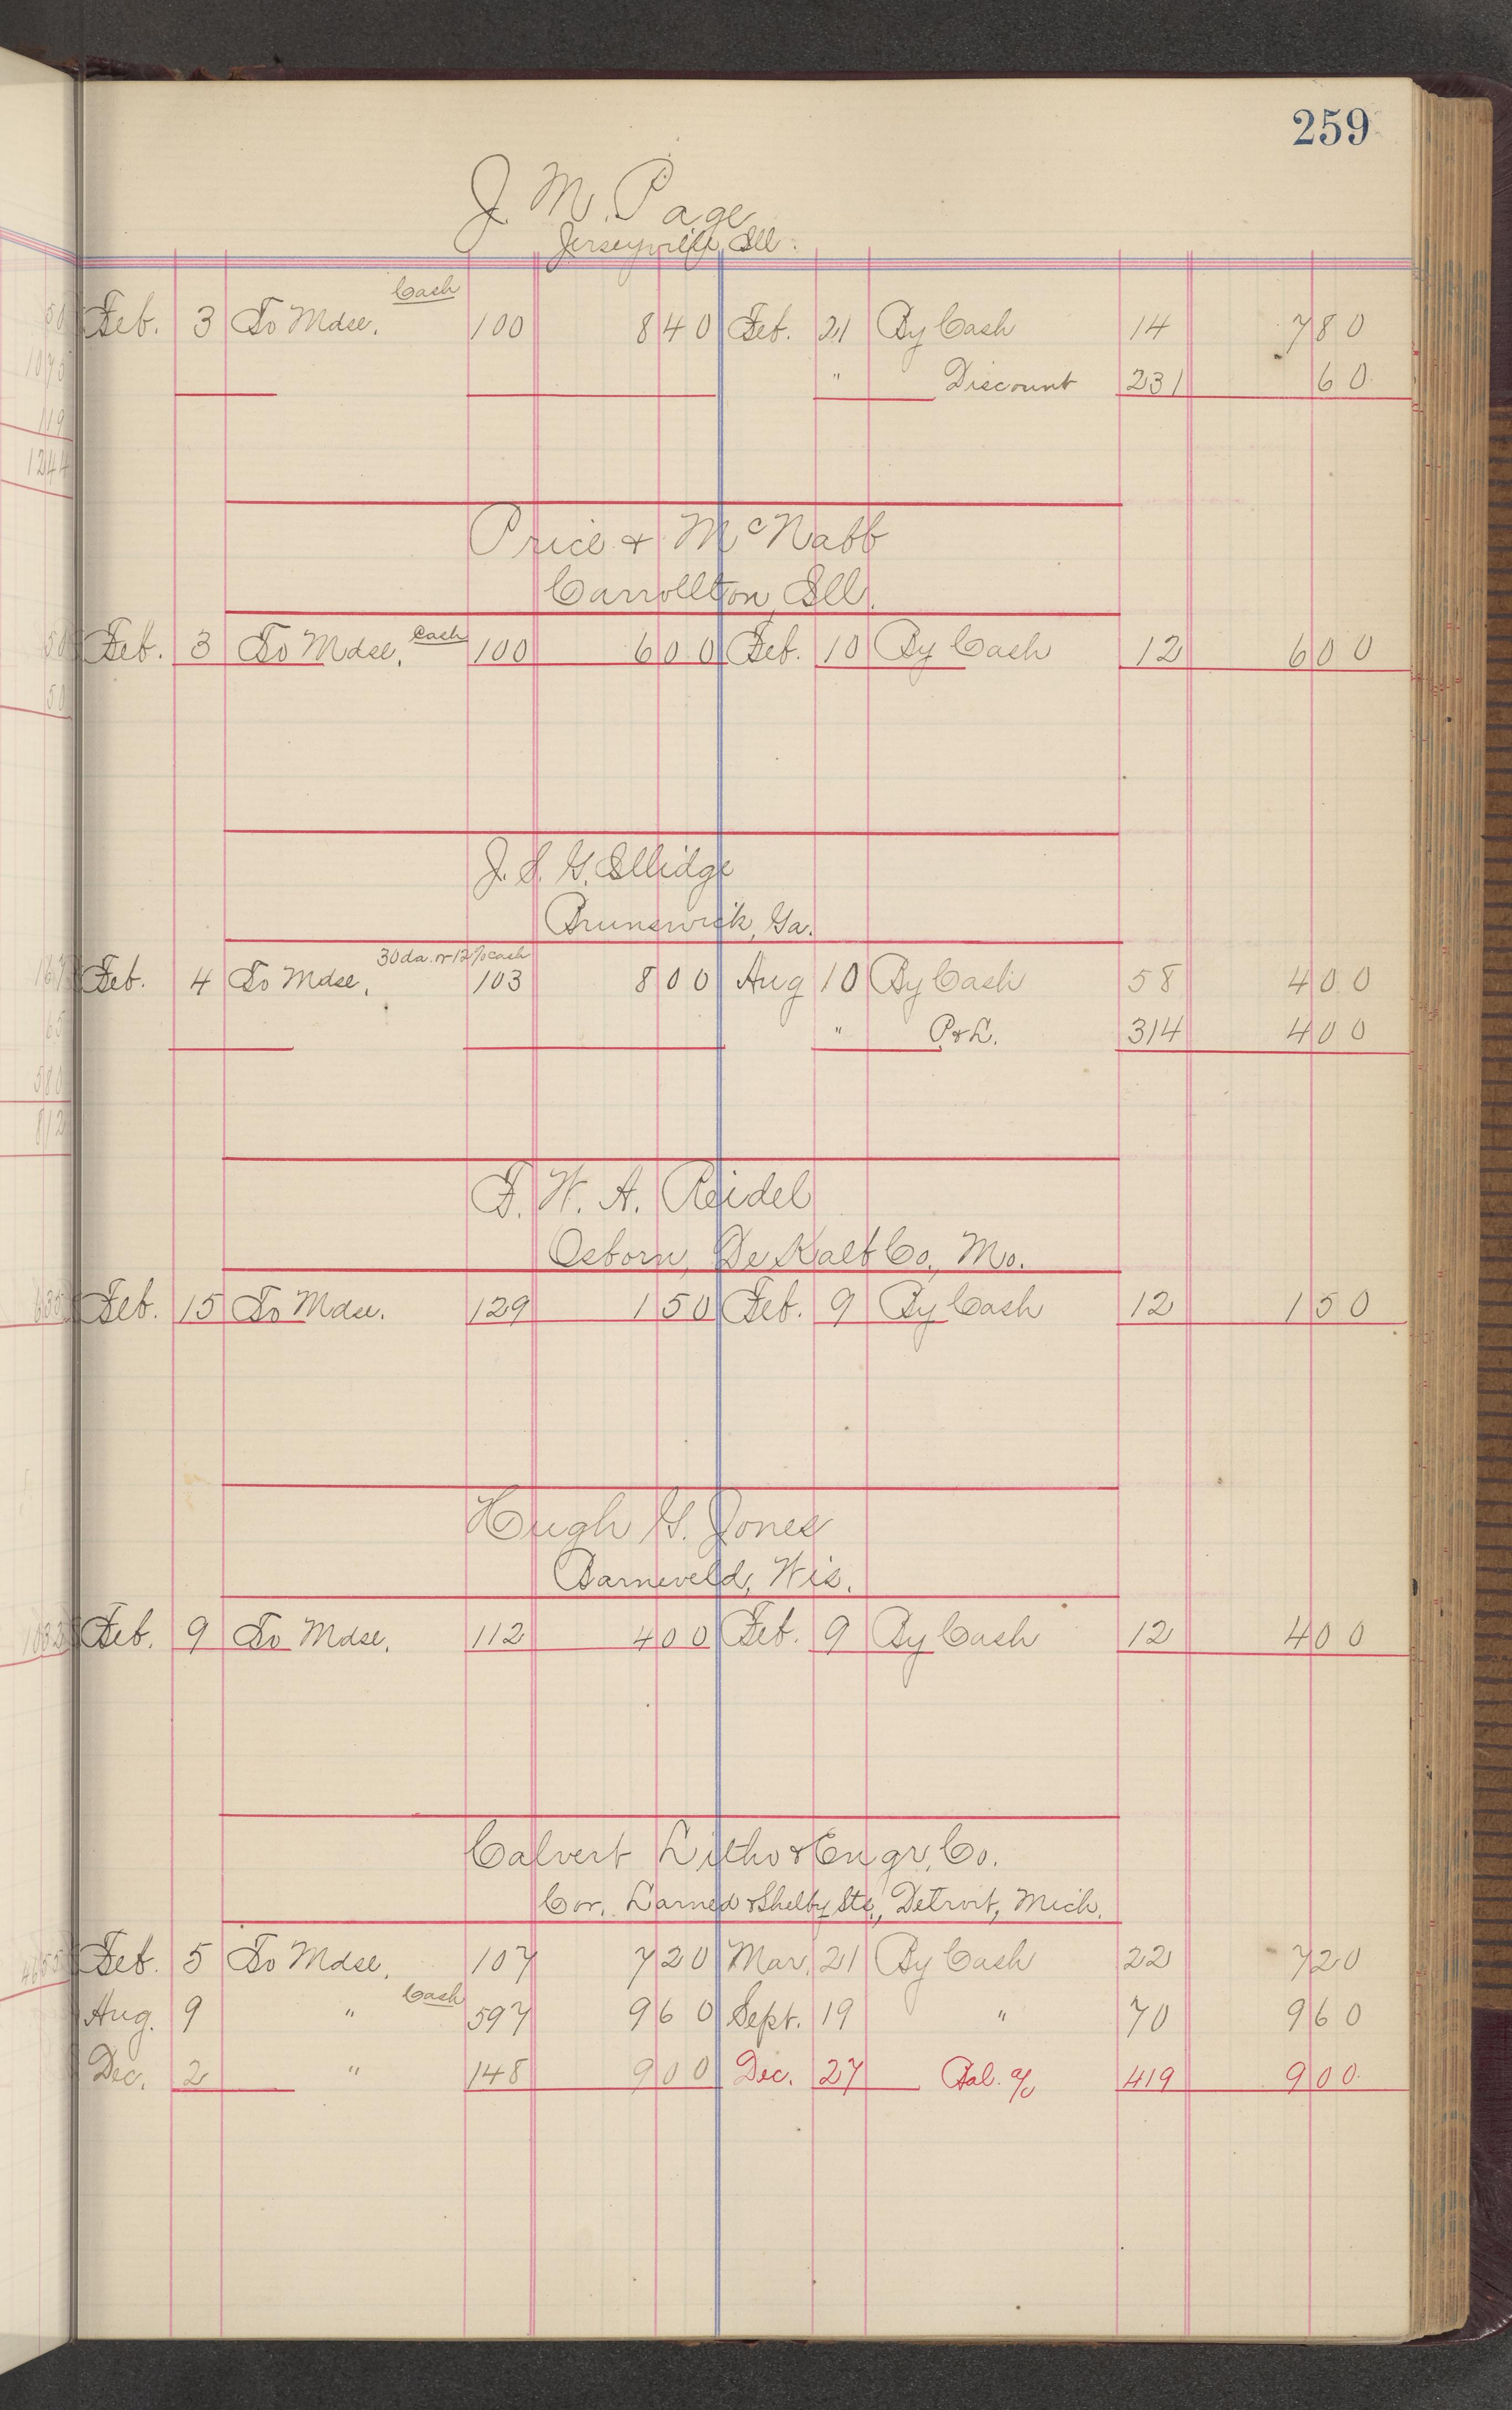 259
J. M. Page
Jerseyville, Ill.
Cash
Feb. 3 To Mdse. 100 8 40 Feb. 21 By Cash 14 7 80
" Discount 231 60
Price & McNabb
Carrollton, Ill.
Feb. 3 To Mdse. Cash 100 6 00 Feb. 10 By Cash 12 6 00
J. S. G. Illidge
Brunswick, Ga.
30 da. or 12% cash
Feb. 4 To Mdse. 103 8 00 Aug 10 By Cash 58 4 00
" P & L. 314 4 00
F. W. A. Reidel
Osborn, De Kalb Co., Mo.
Feb. 15 To Mdse. 129 1 50 Feb. 9 By Cash 12 1 50
Hugh G. Jones
Barneveld, Wis.
Feb. 9 To Mdse. 112 4 00 Feb. 9 By Cash 12 4 00
Calvert Litho & Engr. Co.
Cor. Larned & Shelby Sts., Detroit, Mich.
Feb. 5 To Mdse. 107 7 20 Mar. 21 By Cash 22 7 20
Aug. 9 " Cash 597 9 60 Sept. 19 " 70 9 60
Dec. 2 " 148 9 00 Dec. 27 Bal. a/c 419 9 00